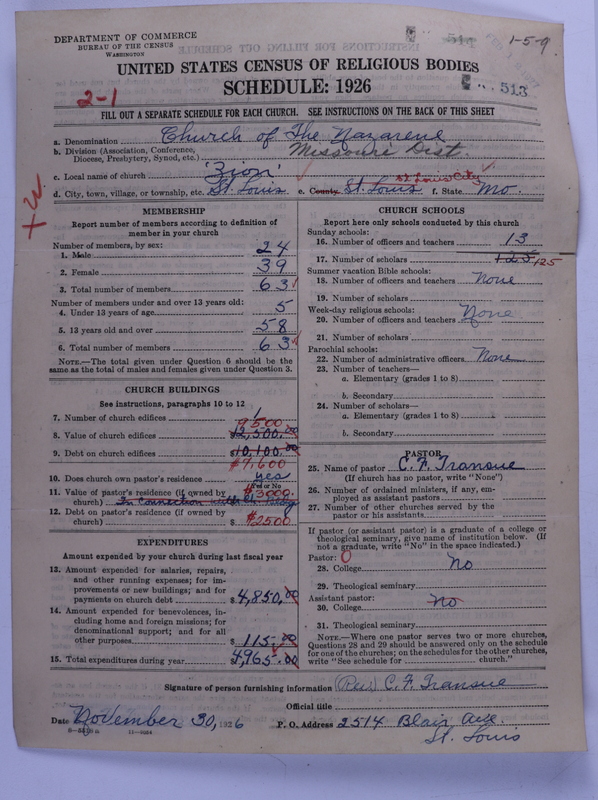 DEPARTMENT OF COMMERCE
BUREAU OF THE CENSUS
WASHINGTON
514
1-5-9
UNITED STATES CENSUS OF RELIGIOUS BODIES
SCHEDULE: 1926
513
2-1
FILL OUT A SEPARATE SCHEDULE FOR EACH CHURCH. SEE INSTRUCTIONS ON THE BACK OF THIS SHEET
a. Denomination Church of The Nazarene
b. Division (Association, Conference, Diocese, Presbytery, Synod, etc.) Missouri Dist.
c. Local name of church "Zion"
d. City, town, village, or township, etc. St. Louis e. County St. Louis St Louis City f. State Mo.
MEMBERSHIP
Report number of members according to definition of
member in your church
Number of members, by sex:
1. Male 24
2. Female 39
3. Total number of members 63
Number of members under and over 13 years old:
4. Under 13 years of age 5
5. 13 years old and over 58
6. Total number of members 63
NOTE.—The total given under Question 6 should be the
same as the total of males and females given under Question 3.
CHURCH BUILDINGS
See instructions, paragraphs 10 to 12
7. Number of church edifices 1
9500
8. Value of church edifices $12,500.00
9. Debt on church edifices $10,100.00
$7,600
10. Does church own pastor's residence yes
Yes or No
11. Value of pastor's residence (if owned by $3000.
church) In Connection with Ch. Bldg
12. Debt on pastor's residence (if owned by
church) $2500
EXPENDITURES
Amount expended by your church during last fiscal year
13. Amount expended for salaries, repairs,
and other running expenses; for im-
provements or new buildings; and for
payments on church debt $4,850.00
14. Amount expended for benevolences, in-
cluding home and foreign missions; for
denominational support; and for all
other purposes $115.00
15. Total expenditures during year $4965.00
CHURCH SCHOOLS
Report here only schools conducted by this church
Sunday schools:
16. Number of officers and teachers 13
17. Number of scholars 125 125
Summer vacation Bible schools:
18. Number of officers and teachers None
19. Number of scholars
Week-day religious schools:
20. Number of officers and teachers None
21. Number of scholars
Parochial schools:
22. Number of administrative officers None
23. Number of teachers—
a. Elementary (grades 1 to 8)
b. Secondary
24. Number of scholars—
a. Elementary (grades 1 to 8)
b. Secondary
PASTOR
25. Name of pastor C. F. Transue
(If church has no pastor, write "None")
26. Number of ordained ministers, if any, em-
ployed as assistant pastors
27. Number of other churches served by the
pastor or his assistants
If pastor (or assistant pastor) is a graduate of a college or
theological seminary, give name of institution below. (If
not a graduate, write "No" in the space indicated.)
Pastor: 0
28. College No
29. Theological seminary
Assistant pastor:
30. College No
31. Theological seminary
NOTE.—Where one pastor serves two or more churches,
Questions 28 and 29 should be answered only on the schedule
for one of the churches; on the schedules for the other churches,
write "See schedule for church."
Signature of person furnishing information (Rev) C. F. Transue
Official title
Date November 30, 1926 P. O. Address 2514 Blair Ave.
St. Louis
11-9284